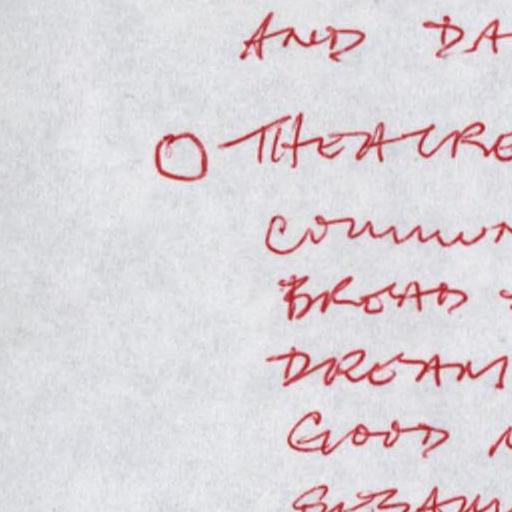 AND DA
O THEATRE
COMMUN
BREAD
DREAM
GOOD